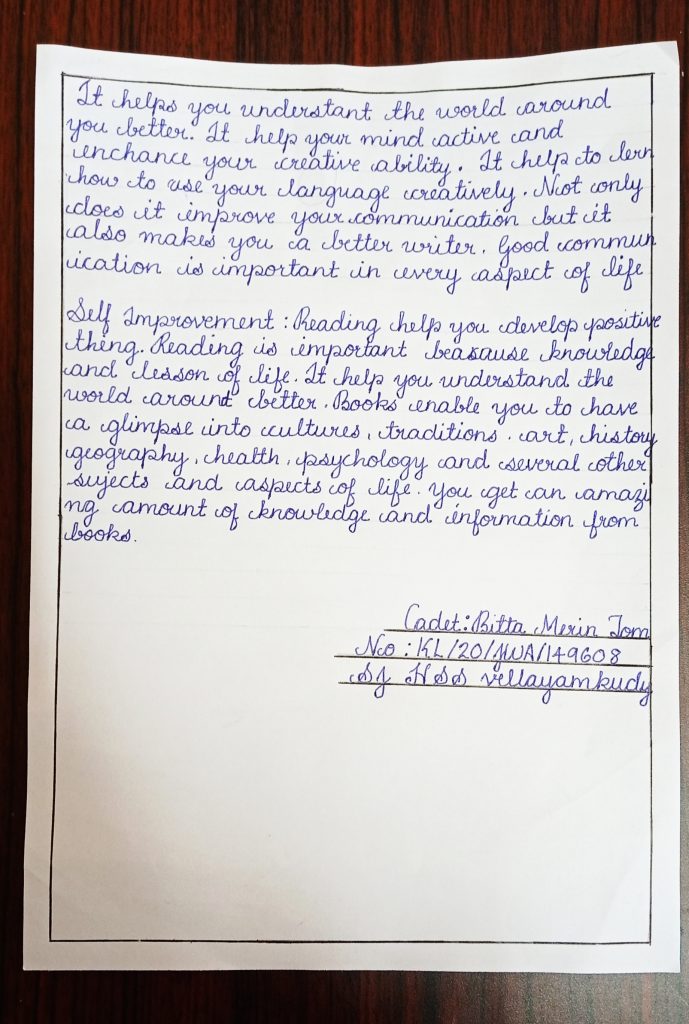 It helps you understant the world around
you better. It help your mind active and
enchance your creative ability. It help to lern
how to use your language creatively. Not only
does it improve your communication but it
also makes you a better writer. Good commun
ication is important in every aspect of life
Self Improvement : Reading help you develop positive
thing. Reading is important beasause knowledge
and lesson of life. It help you understand the
world around better. Books enable you to have
a glimpse into cultures, traditions. art, history
geography, health, psychology and several other
sujects and aspects of life. You get an amazi
ng amount of knowledge and information from
books.
Cadet: Bitta Merin Tom
No : KL/20/JWA/149608
SJ HSS vellayamkudy